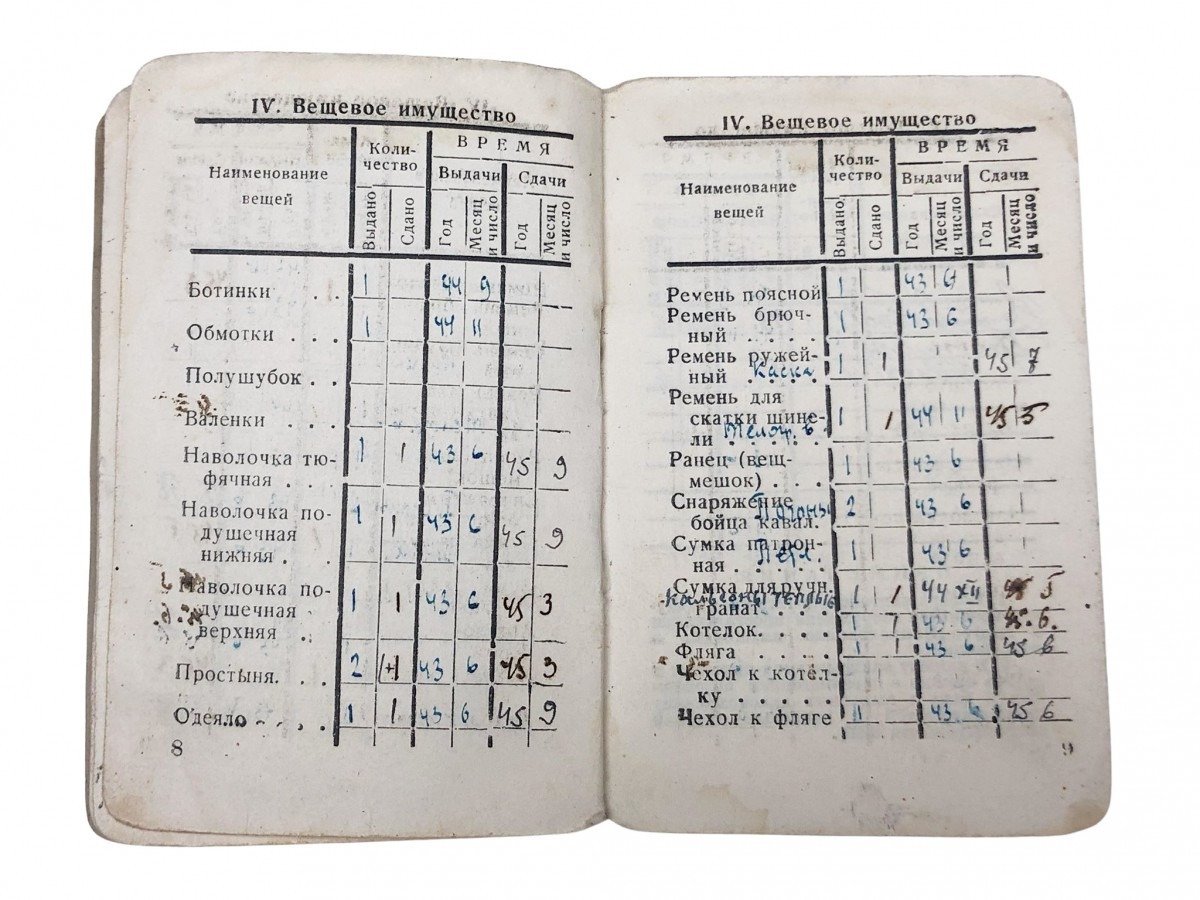 IV. Вещевое имущество
Наименование вещей
Коли-чество
ВРЕМЯ
Выдачи
Сдачи
Выдано
Сдано
Год
Месяц и число
Год
Месяц и число
Ботинки . . . 1 44 9
Обмотки . . . 1 44 11
Полушубок . .
Валенки . . .
Наволочка тю-
фячная . . . 1 1 43 6 45 9
Наволочка по-
душечная
нижняя . . 1 1 43 6 45 9
Наволочка по-
душечная
верхняя . . 1 1 43 6 45 3
Простыня. . . 2 43 6 45 3
Одеяло . . . 1 1 43 6 45 9
8
IV. Вещевое имущество
Наименование вещей
Коли-чество
ВРЕМЯ
Выдачи
Сдачи
Выдано
Сдано
Год
Месяц и число
Год
Месяц и число
Ремень поясной 1 43 6
Ремень брюч-
ный . . . . 1 43 6
Ремень ружей-
ный . . . . Каска 1 1 45 7
Ремень для
скатки шине-
ли . . . . . 1 1 44 11 45 5
Ранец (вещ-
мешок) . . . 1 43 6
Снаряжение
бойца кавал. Погоны 2 43 6
Сумка патрон-
ная . . . . 1 43 6
Сумка для ручн.
гранат . . . . Кальсоны теплые 1 1 44 XII 45 5
Котелок. . . . 1 1 43 6 45. 6.
Фляга . . . . 1 1 43 6 45 6
Чехол к котел-
ку . . . . .
Чехол к фляге 43 6 45 6
9